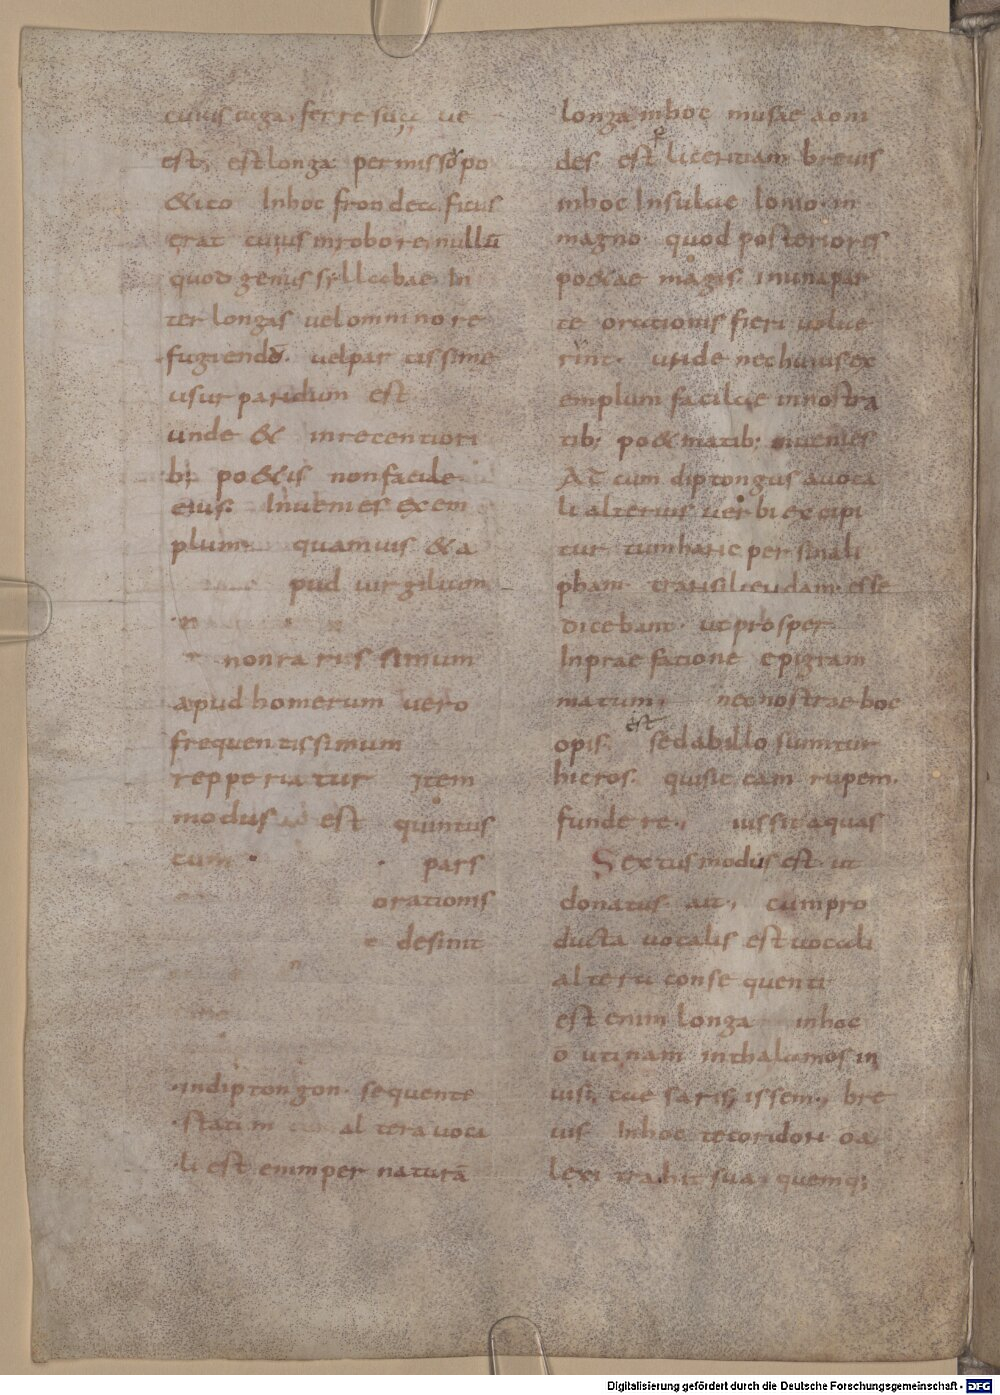 cuius iuga, ferre suꝗ ue
est, est longa permisso po
&ico Inhoc fronde ficus
erat cuius inrobore, nullū
quod genus syllabae In
ter longas vel omnino re
fugiendū. uel partissime
usurpandum est
unde & inrecentiori
b; po&is non facile
eius. Inuenies exem
plum quamuis & a
pud uirgilium
non rarissimum
apud homerum vero
frequentissimum
repperiatur Item
modus est quintus
cum pars
orationis
desinit
in diptongon. sequente
statim altera uoca
li est enim per naturā
longa inhoc musae aoni
des est licentiam breuis
inhoc Insulae Ionio in
magno quod posteriores
po&ae magis inunapar
te orationis fieri uolue
rint. unde nec huius ex
emplum facilae innostra
tib; po&matib; inuenies
AT cum diptongus auoca
li alterius uerbi excipi
tur tum hanc per sinali
pham transiliendam esse
dicebant. ut prosper
Inpraefatione epigram
matum, nec nostrae hoc
est
opis. sed ab illo sumitur
hic ros. qui siccam rupem.
fundere., iussit aquas
Sextus modus est ut
donatus ait, cum pro
ducta uocalis est uocali
altera consequenti
est enim longa inhoc
o utinam inthalamos in
uisi, caesaris, issem., bre
uis Inhoc te coridon o a
lexi trahit sua, quemq;
Digitalisierung gefördert durch die Deutsche Forschungsgemeinschaft - DFG